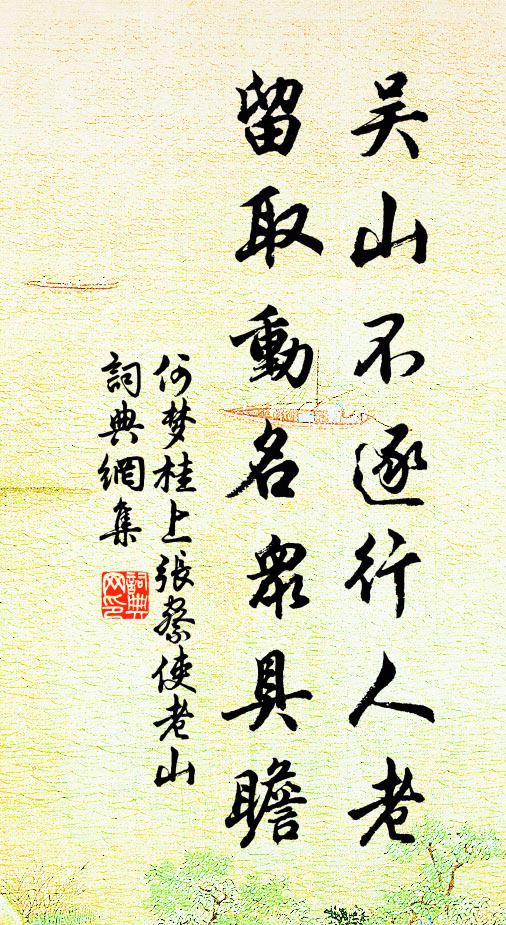 吴山不逐行人老
留取動名衆具瞻
何梦桂上張祭使老山
詞典網集
詞典
网印